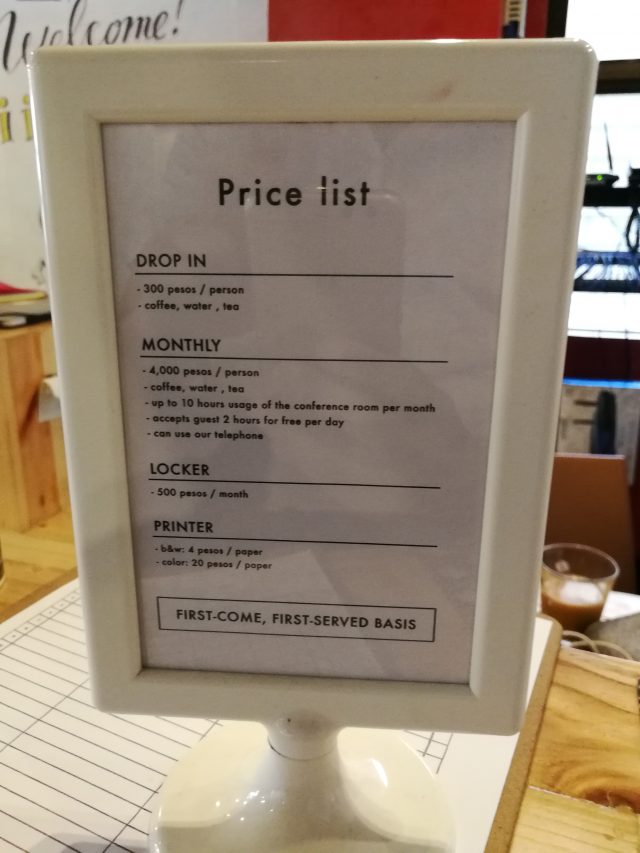 Welcome!
Price list
DROP IN
- 300 pesos / person
- coffee, water , tea
MONTHLY
- 4,000 pesos / person
- coffee, water , tea
- up to 10 hours usage of the conference room per month
- accepts guest 2 hours for free per day
- can use our telephone
LOCKER
- 500 pesos / month
PRINTER
- b&w: 4 pesos / paper
- color: 20 pesos / paper
FIRST-COME, FIRST-SERVED BASIS